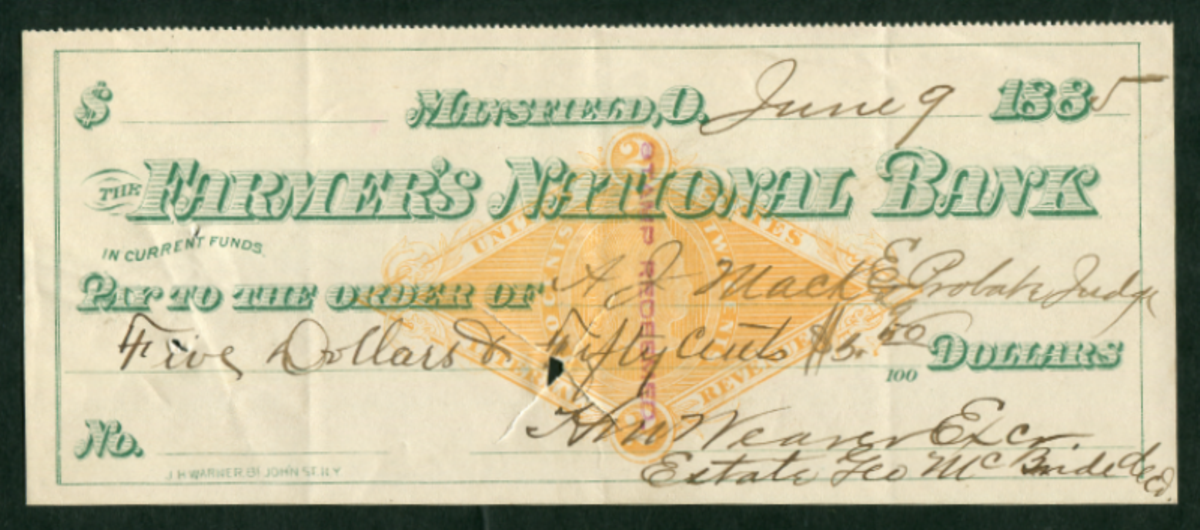 $ MANSFIELD, O. June 9 1885
THE FARMER'S NATIONAL BANK
IN CURRENT FUNDS
PAY TO THE ORDER OF A J Mack Probate Judge
Five Dollars & Fifty Cents $5. 50/100 DOLLARS
No. Weaver Excr.
J.H WARNER. 61 JOHN ST. N.Y
Estate Geo McBride decd.
2
UNITED STATES
TWO CENTS
REVENUE
2
STAMP REDEEMED